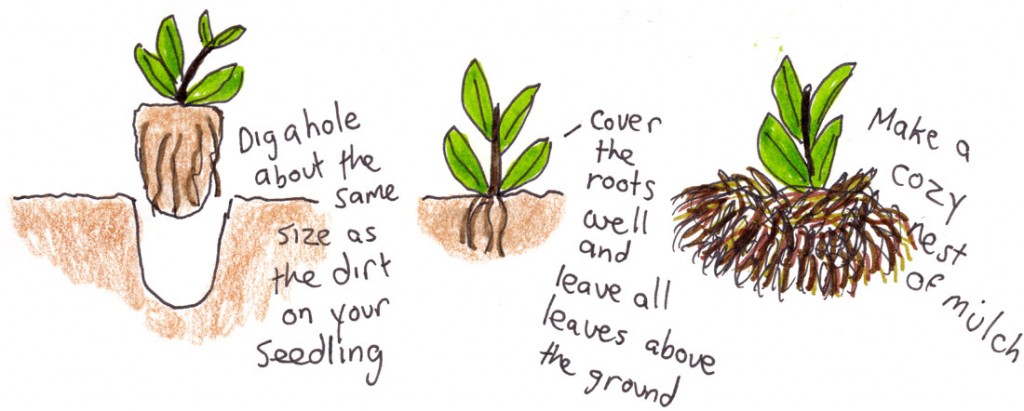 Dig a hole
about the
same
size as
the dirt
on your
Seedling
cover
the
roots
well
and
leave all
leaves above
the ground
Make a
cozy
nest
of mulch